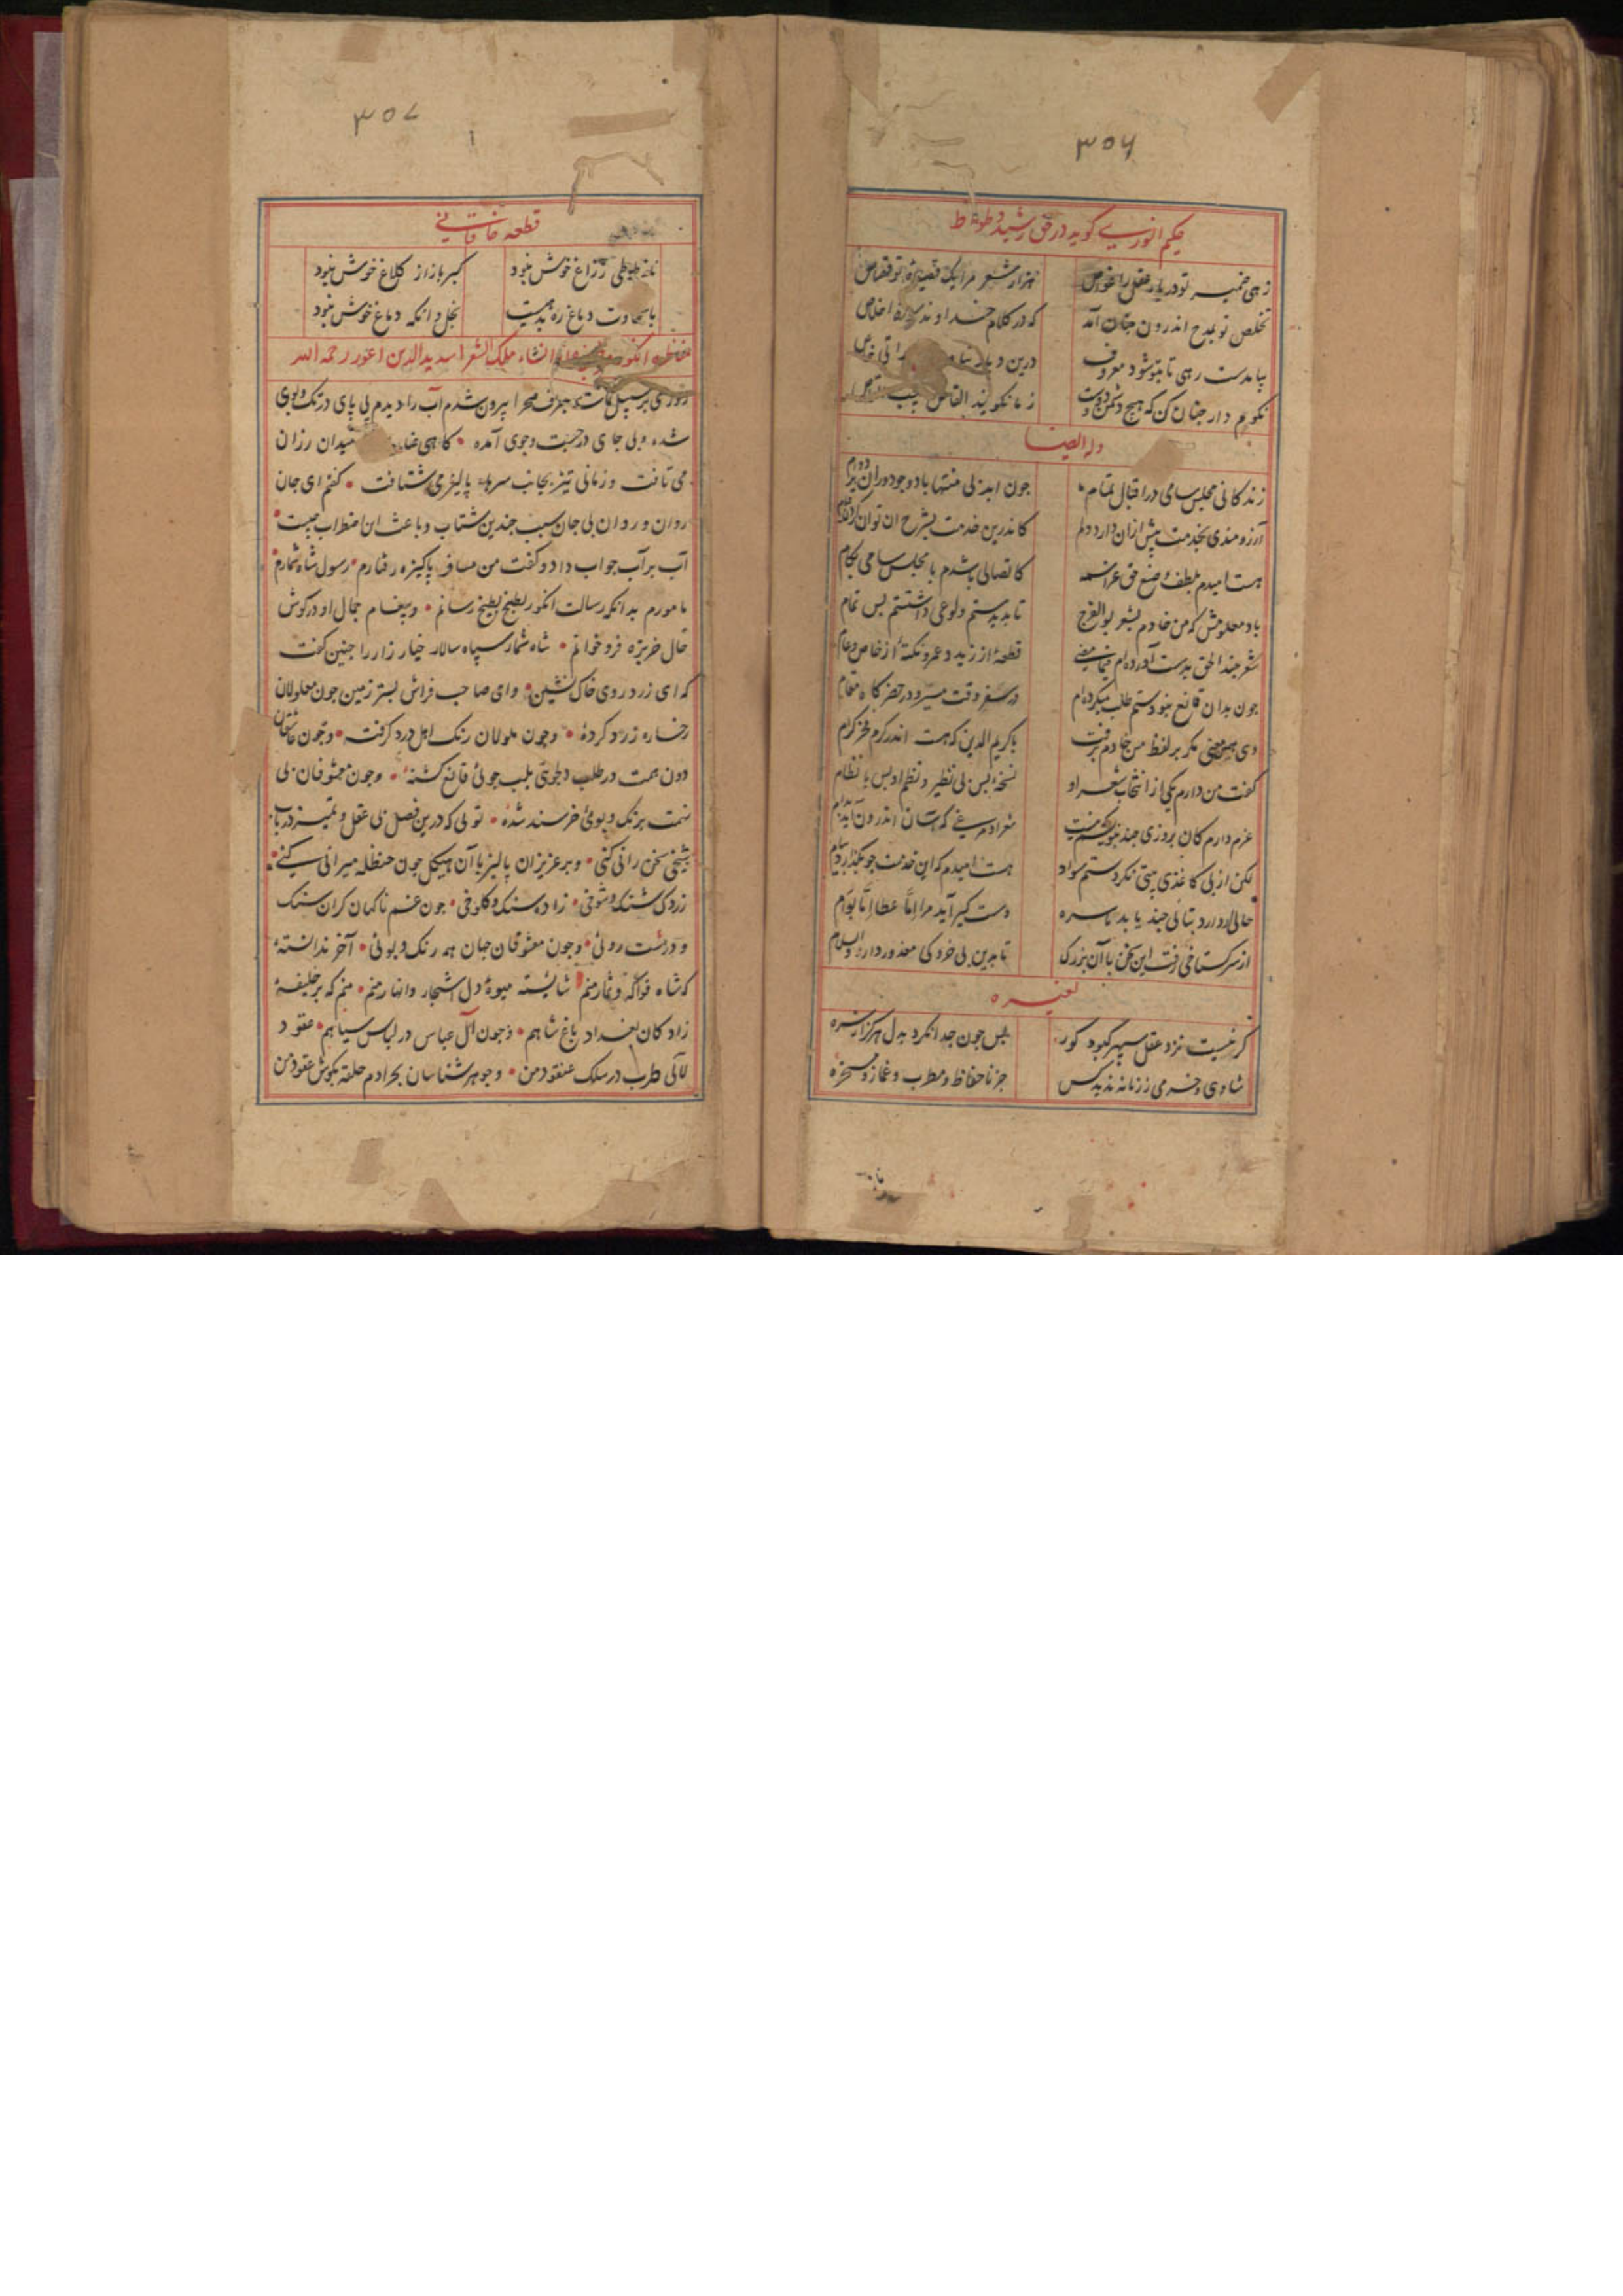 ۳۵۶
حکیم انوری گوید در حق رشید وطواط
زهی ضمیر تو دریای عقل را غواص هزار شعر مرا یک قصیدهٔ تو قصاص
تخلص تو بمدح اندرون جنان آمد که در کلام خداوند سورهٔ اخلاص
بیامدست رهی تا بتو شود معروف درین دیار
نکویم دار جنان کن که هیچ دشمن و دوست ز ما نکویند القاص
وله ایضا
زندکانی مجلس سامی در اقبال تمام جون ابد بی منتها باد و جو دوران بر دوام
آرزومندی بخدمت بیش ازان دارد دلم کاندرین خدمت بشرح ان توان
هست امیدم بلطف و صنع حق عز اسمه کاتصالی باشدم با مجلس سامی بکام
باد معلومش که من خادم بشعر بوالفرج تا بدیدستم ولوعی داشتستم بس تمام
شعر جند الحق بدست آورده‌ام فیما مضی قطعهٔ از زید و عمرو نکتهٔ از خاص و عام
جون بدان قانع نبودستم طلب میکرده‌ام در سفر وقت مسیر و در حضر کاه مقام
دی همین معنی مکر بر لفظ من خادم برفت با کریم الدین که هست اندر کرم فخر کرام
کفت من دارم یکی از انتخاب شعر او نسخهٔ بس بی نظیر و نظم او بس با نظام
عزم دارم کان بروزی جند بنویسم شعر او مرغی که آسان اندرون آید بدام
لکن از بی کاغذی بیتی نکردستم سواد هست امیدم که این خدمت جو بکذارد پیام
حالی ار دارد بتایی جند یا بد یا سره دست کیر آید مرا اما عطا اما بوام
از سر کستاخی رفت این سخن با آن بزرک تا بدین بی خردکی معذور دارد والسلام
لغیره
کر نیست نزد عقل سپهر کبود کور بس جون جدا نکرد بدل هرکز از سره
شادی و خرمی ز زمانه ندید کس جز نا حفاظ و مطرب و غماز و مسخره
۳۵۷
قطعه خاقانی
ناز طوطی ز زاغ خوش نبود کبر باز از کلاغ خوش نبود
با سخاوت دماغ زه بدهیست بخل و انکه دماغ خوش نبود
مناظره انکور انشاء ملک الشعرا سدید الدین اعور رحمه الله
روزی بر سبیل بطرف صحرا بیرون شدم آب را دیدم بی پای در تک و پوی
شده و بی جای در جست و جوی آمده کاهی میدان رزان
می تافت و زمانی تیز بجانب سرهاء پالیزی شتافت کفتم ای جان
روان و روان بی جان سبب جندین شتاب و باعث این اضطراب جیست
آب بر آب جواب داد و کفت من مسافر پاکیزه رفتارم رسول شاه ثمارم
مامورم بدانکه رسالت انکور بطبخ بطیخ رسانم و پیغام جمال او در کوش
حال خربزه فرو خوانم شاه ثمار سپاه سالار خیار زار را جنین کفت
که ای زرد روی خاک نشین و ای صاحب فراش بستر زمین جون معلولان
رخساره زرد کردهٔ و جون ملولان رنک اهل درد کرفته و جون عاشقان
دون همت در طلب دلجویی بلب جوئی قانع کشتهٔ و جون معشوقان بی
نمت برنک و بوئی خرسند شدهٔ تویی که درین فصل بی عقل و تمیز در باب
شیخی سخن رانی کنی و بر عزیزان پالیز با آن هیکل جون حنظله میرانی کنی
زردک سنک و کلوخی جون غم ناکهان کران سنک
و درشت روئی و جون معشوقان جهان همه رنک و بوئی آخر ندانستهٔ
که شاه فواکه و ثمار منم شایسته میوهٔ دل اشجار و انهار منم منم که بر خلیفهٔ
زادکان بغداد باغ شاهم و جون آل عباس در لباس سیاهم عقود
لآلی طرب در سلک عنقود من و جوهر شناسان بحر ادم حلقه بکوش عقود من